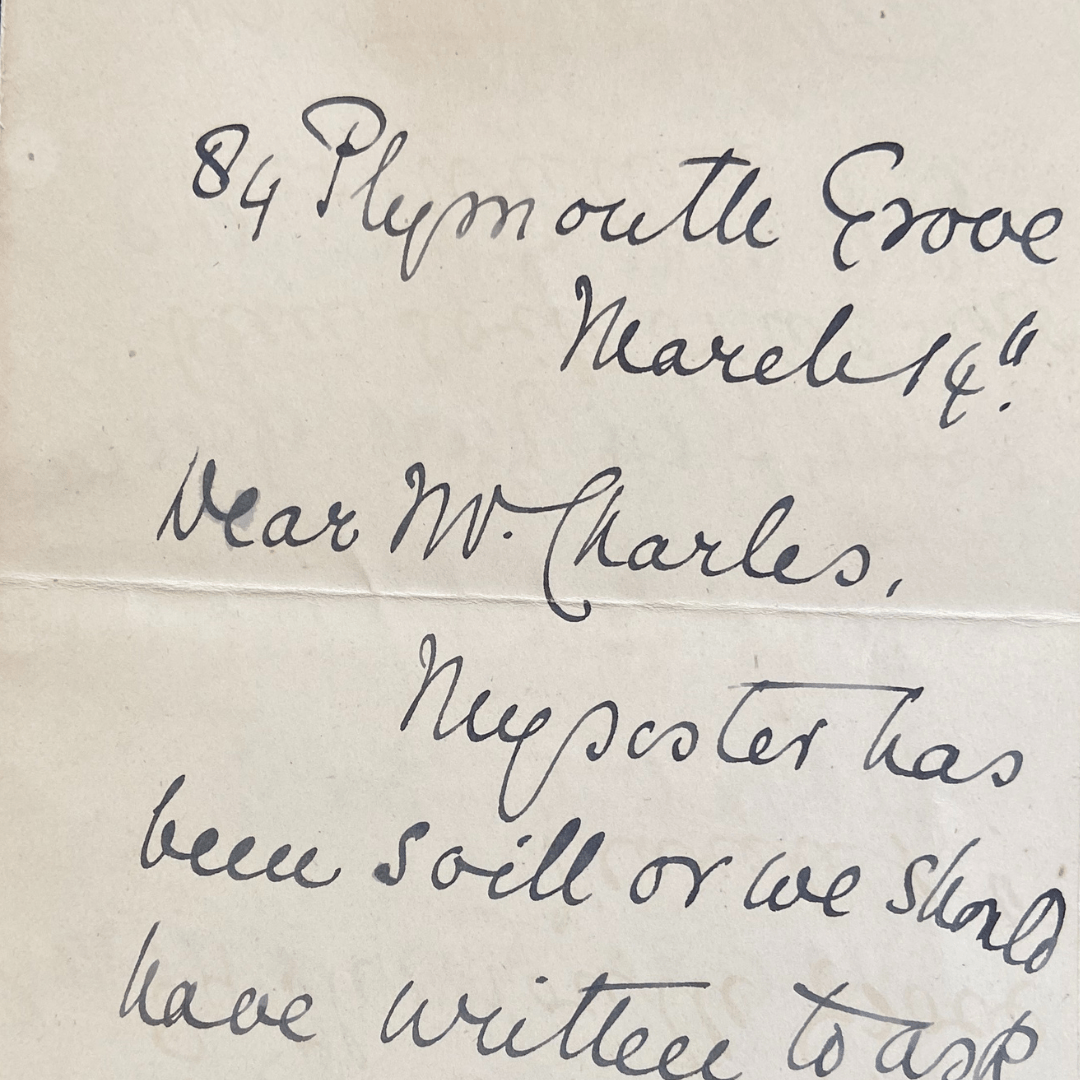 84 Plymouth Grove
March 14th.
Dear Mr. Charles,
My sister has
been so ill or we should
have written to ask